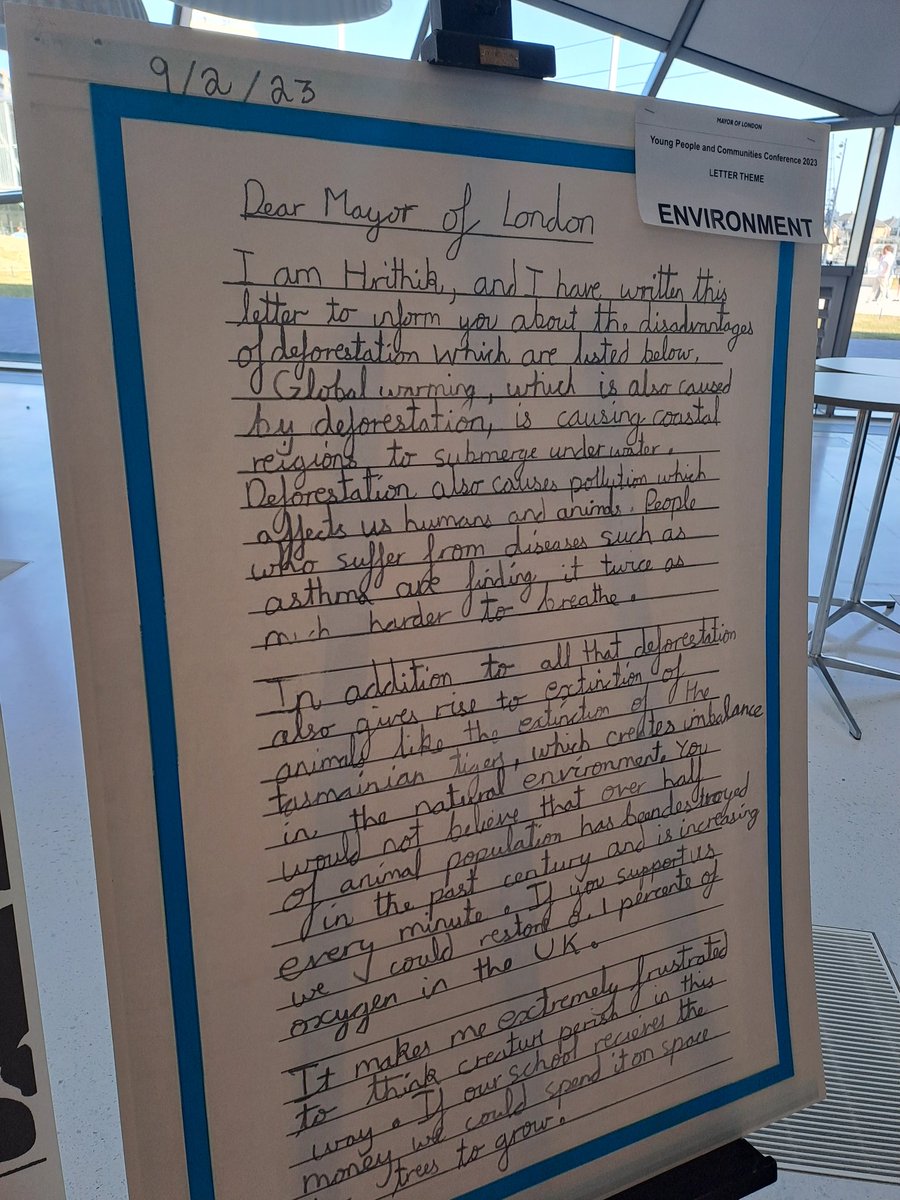 9/2/23
MAYOR OF LONDON
Young People and Communities Conference 2023
LETTER THEME
ENVIRONMENT
Dear Mayor of London
I am Hrithik, and I have written this
letter to inform you about the disadvantages
of deforestation which are listed below.
Global warming, which is also caused
by deforestation, is causing coastal
reigions to submerge under water.
Deforestation also causes pollution which
affects us humans and animals. People
who suffer from diseases such as
asthma are finding it twice as
much harder to breathe.
In addition to all that deforestation
also gives rise to extinction of
animals like the extinction of the
tasmainian tiger, which creates imbalance
in the natural environment. You
would not believe that over half
of animal population has been destroyed
in the past century and is increasing
every minute. If you support us
we could restore 0.1 percente of
oxygen in the UK.
It makes me extremely frustrated
to think creature perish in this
way. If our school recieves the
money we could spend it on space
trees to grow!